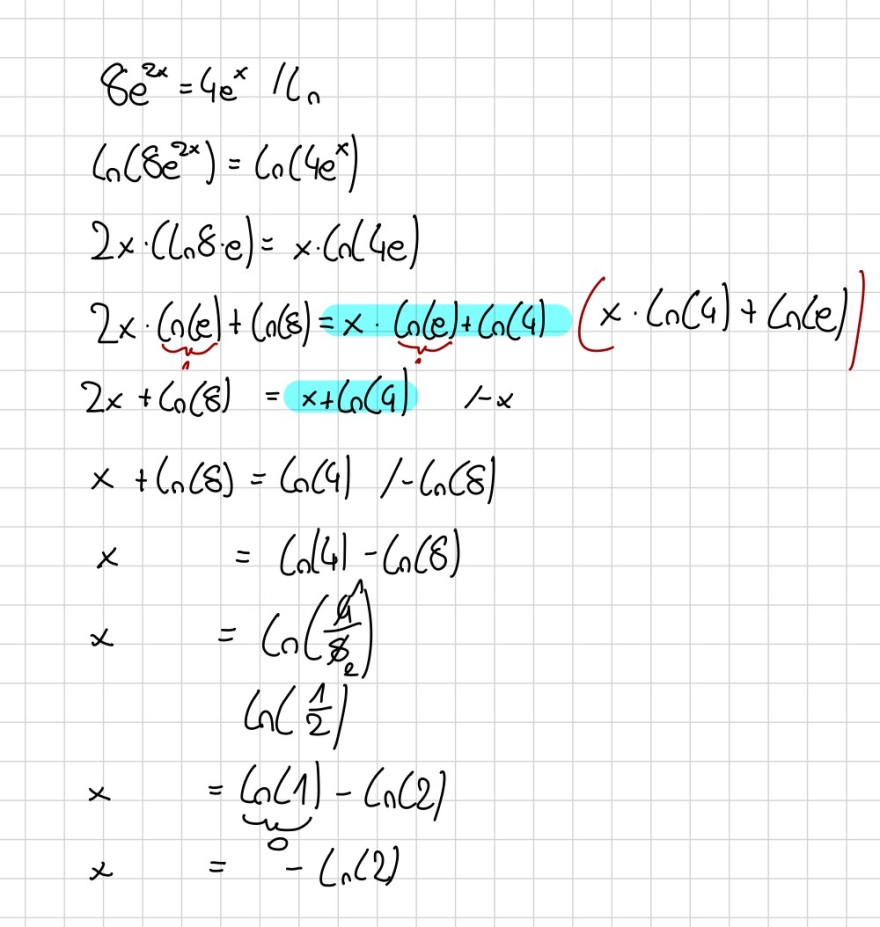 8e^{2x} = 4e^x /ln
ln(8e^{2x}) = ln(4e^x)
2x·(ln8·e) = x·ln(4e)
2x·ln(e) + ln(8) = x·ln(e) + ln(4) (x·ln(4) + ln(e))
1 1
2x + ln(8) = x + ln(4) /-x
x + ln(8) = ln(4) /-ln(8)
x = ln(4) - ln(8)
x = ln(4̸^1/8̸_2)
ln(1/2)
x = ln(1) - ln(2)
0
x = - ln(2)